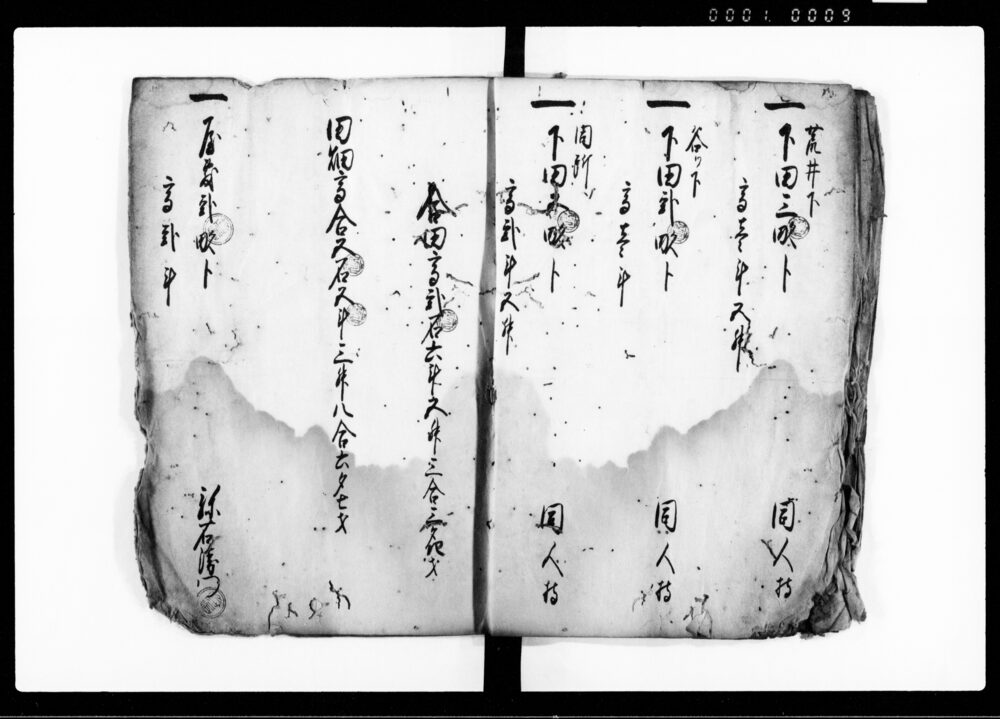 0001 0009
荒井下
一 下田三畝卜 同人持
高壱斗五升
谷り下
一 下田弐畝卜 同人持
高壱斗
同所
一 下田 畝卜 同人持
高弐斗五升
合田高弐石六斗五升三合三夕 才
田畑高合五石五斗三升八合六夕七才
一 屋敷弐畝卜 右衛門
高弐斗